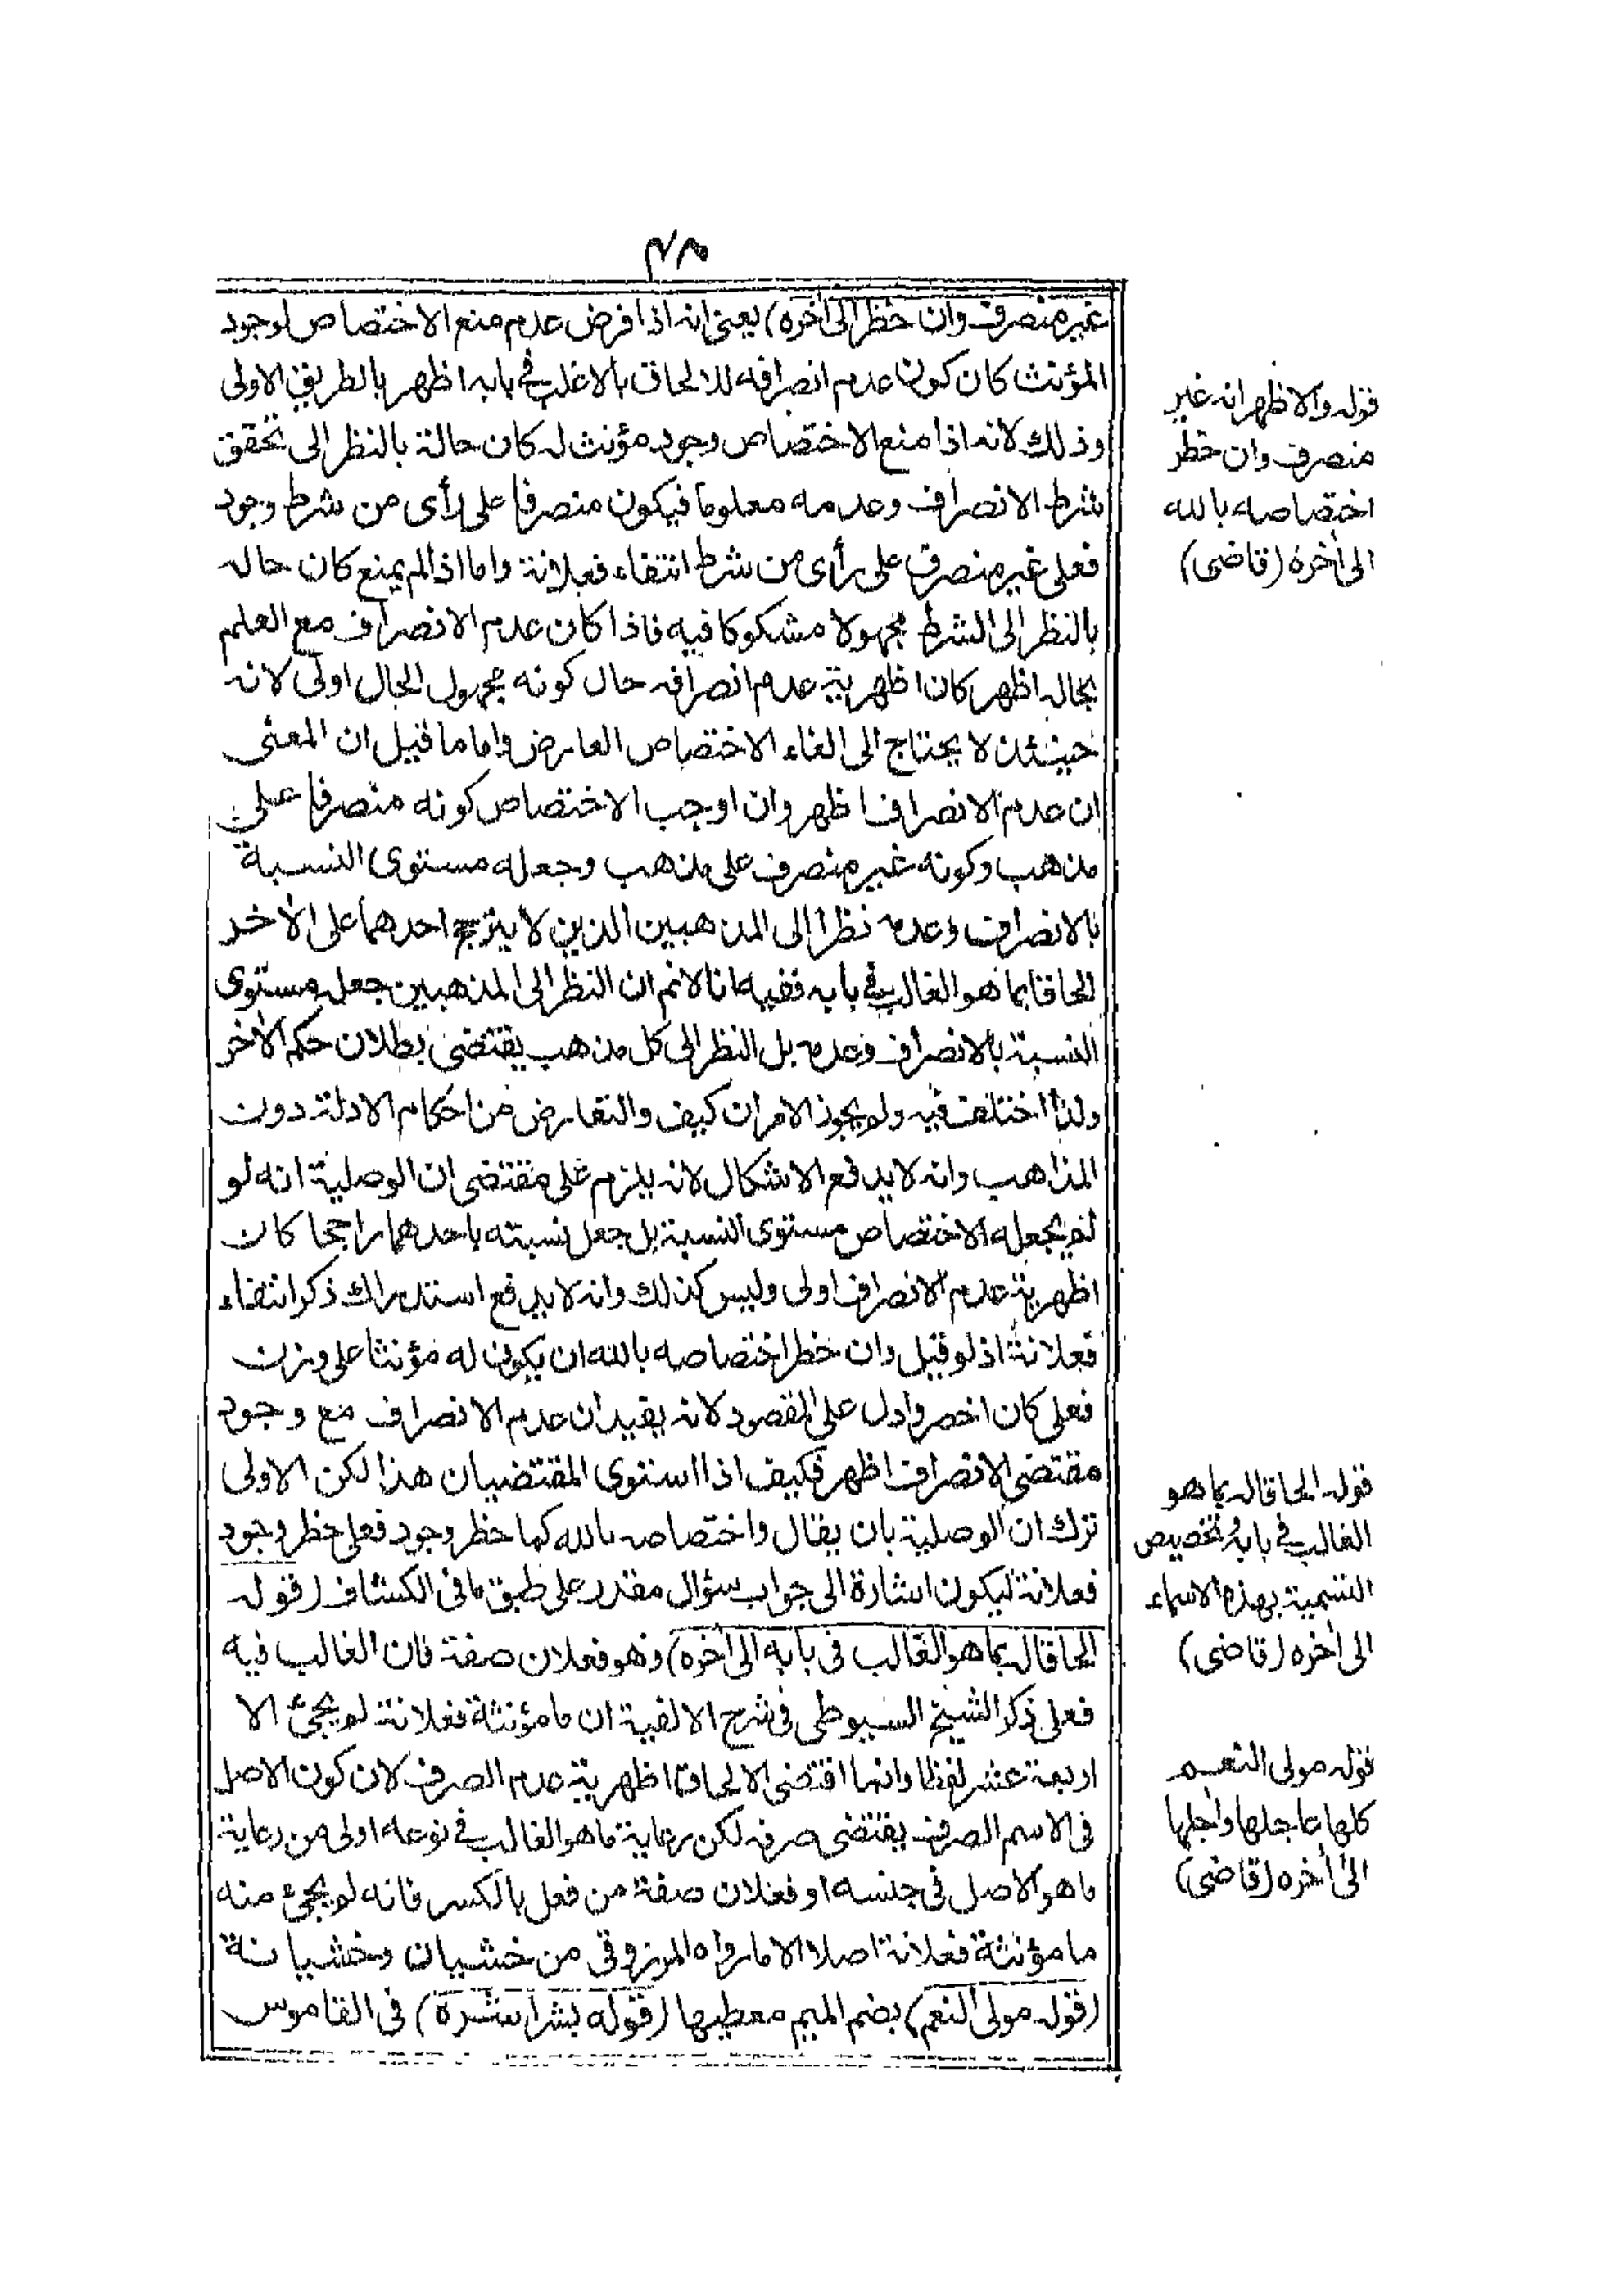 غير منصرف وان حظر الى اخره) يعنى انه اذا فرض عدم منع الاختصاص لوجود
المؤنث كان كون عدم انصرافه للالحاق بالاغلب فى بابه اظهر بالطريق الاولى
وذلك لانه اذا منع الاختصاص وجود مؤنث له كان حالة بالنظر الى تحقق
شرط الانصراف وعدمه معلوما فيكون منصرفا على رأى من شرط وجود
فعلى غير منصرف على رأى من شرط انتفاء فعلانة واما اذا لم يمنع كان حاله
بالنظر الى الشرط مجهولا مشكوكا فيه فاذا كان عدم الانصراف مع العلم
بحاله اظهر كان اظهرية عدم انصرافه حال كونه مجهول الحال اولى لانه
حينئذ لا يحتاج الى الغاء الاختصاص العارض واما ما قيل ان المعنى
ان عدم الانصراف اظهر وان اوجب الاختصاص كونه منصرفا على
مذهب وكونه غير منصرف على مذهب وجعله مستوى النسبة
بالانصراف وعدمه نظرا الى المذهبين الذين لا يترجح احدهما على الاخر
الحاقا بما هو الغالب فى بابه ففيه انا لانم ان النظر الى المذهبين جعله مستوى
النسبة بالانصراف وعدمه بل النظر الى كل مذهب يقتضى بطلان حكم الاخر
ولذا اختلف فيه ولم يجوز الامران كيف والتعارض من احكام الادلة دون
المذاهب وانه لا يدفع الاشكال لانه يلزم على مقتضى ان الوصلية انه لو
لم يجعله الاختصاص مستوى النسبة بل جعل نسبته باحدهما راجحا كان
اظهرية عدم الانصراف اولى وليس كذلك وانه لا يدفع استدراك ذكر انتفاء
فعلانة اذ لو قيل وان حظر اختصاصه بالله ان يكون له مؤنثا على وزن
فعلى كان اخصر وادل على المقصود لانه يفيد ان عدم الانصراف مع وجود
مقتضى الانصراف اظهر فكيف اذا استوى المقتضيان هذا لكن الاولى
ترك ان الوصلية بان يقال واختصاصه بالله كما حظر وجود فعلى حظر وجود
فعلانة ليكون اشارة الى جواب سؤال مقدر على طبق ما فى الكشاف (قوله
الحاقا له بما هو الغالب فى بابه الى اخره) وهو فعلان صفة فان الغالب فيه
فعلى ذكر الشيخ السيوطى فى شرح الالفية ان ما مؤنثة فعلانة لم يجئ الا
اربعة عشر لفظا وانما اقتضى الالحاق اظهرية عدم الصرف لان كون الاصل
فى الاسم الصرف يقتضى صرفه لكن رعاية ما هو الغالب فى نوعه اولى من رعاية
ما هو الاصل فى جنسه او فعلان صفة من فعل بالكسر فانه لم يجئ منه
ما مؤنثة فعلانة اصلا الا ما رواه المرزوقى من خشيان وخشيانة
(قوله مولى النعم) بضم الميم معطيها (قوله بشراشره) فى القاموس
قوله والاظهر انه غير
منصرف وان حظر
اختصاصه بالله
الى اخره (قاضى)
قوله الحاقا له بما هو
الغالب فى بابه وتخصيص
التسمية بهذه الاسماء
الى اخره (قاضى)
قوله مولى النعم
كلها عاجلها واجلها
الى اخره (قاضى)